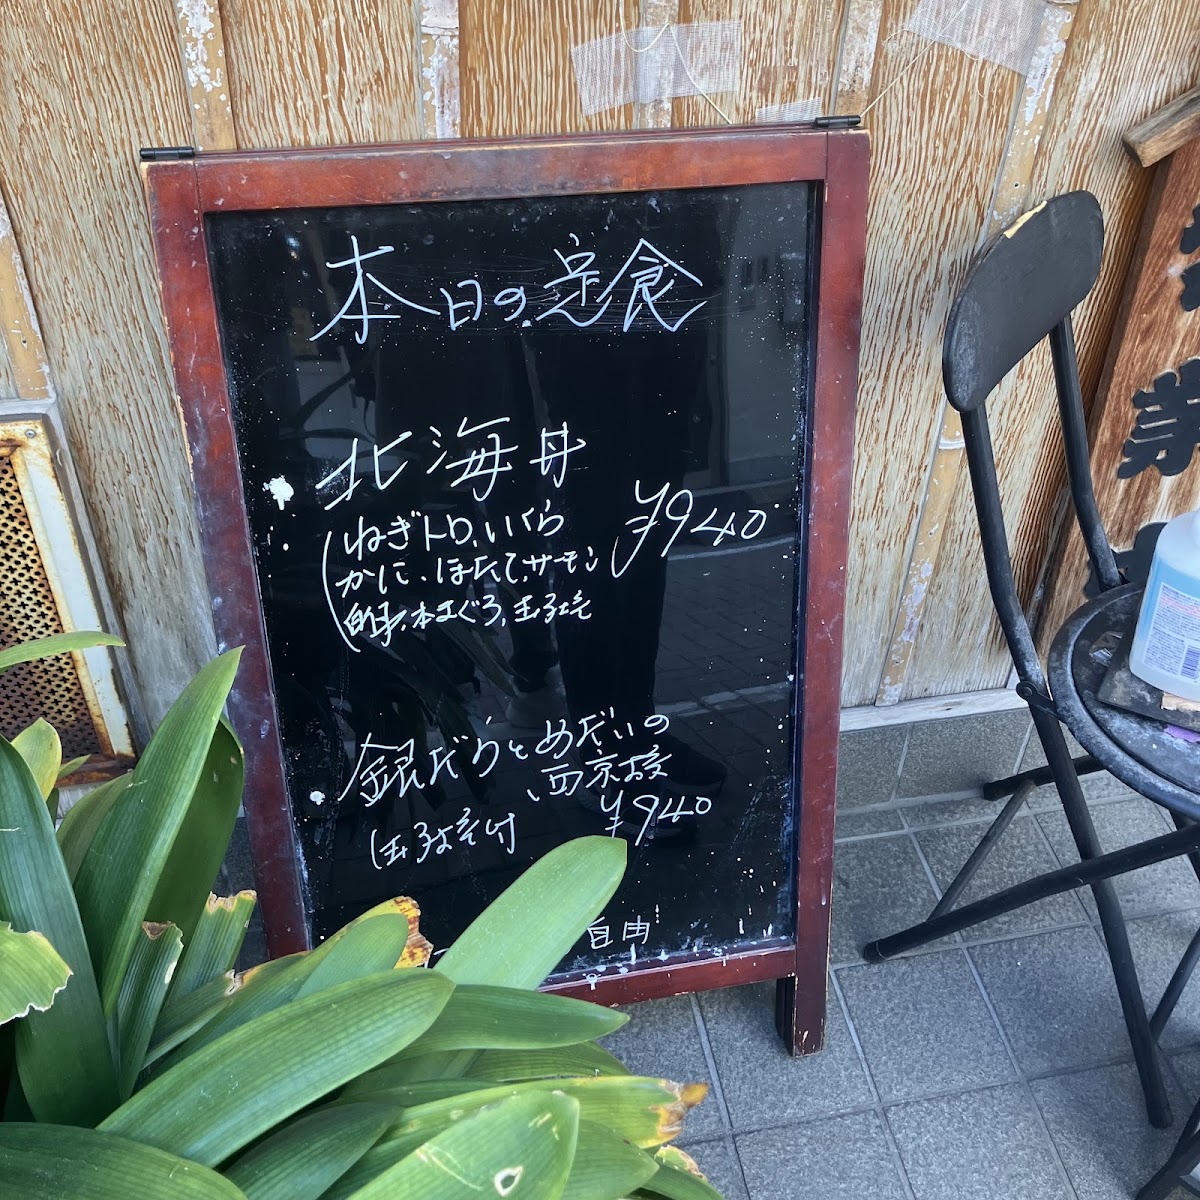 本日の定食
・北海丼
(ねぎトロ、いくら ¥940
かに、ほたて、サーモン
白身、本まぐろ、玉子焼
・銀だらとめだいの
西京焼
(玉子焼付 ¥940
自由
業